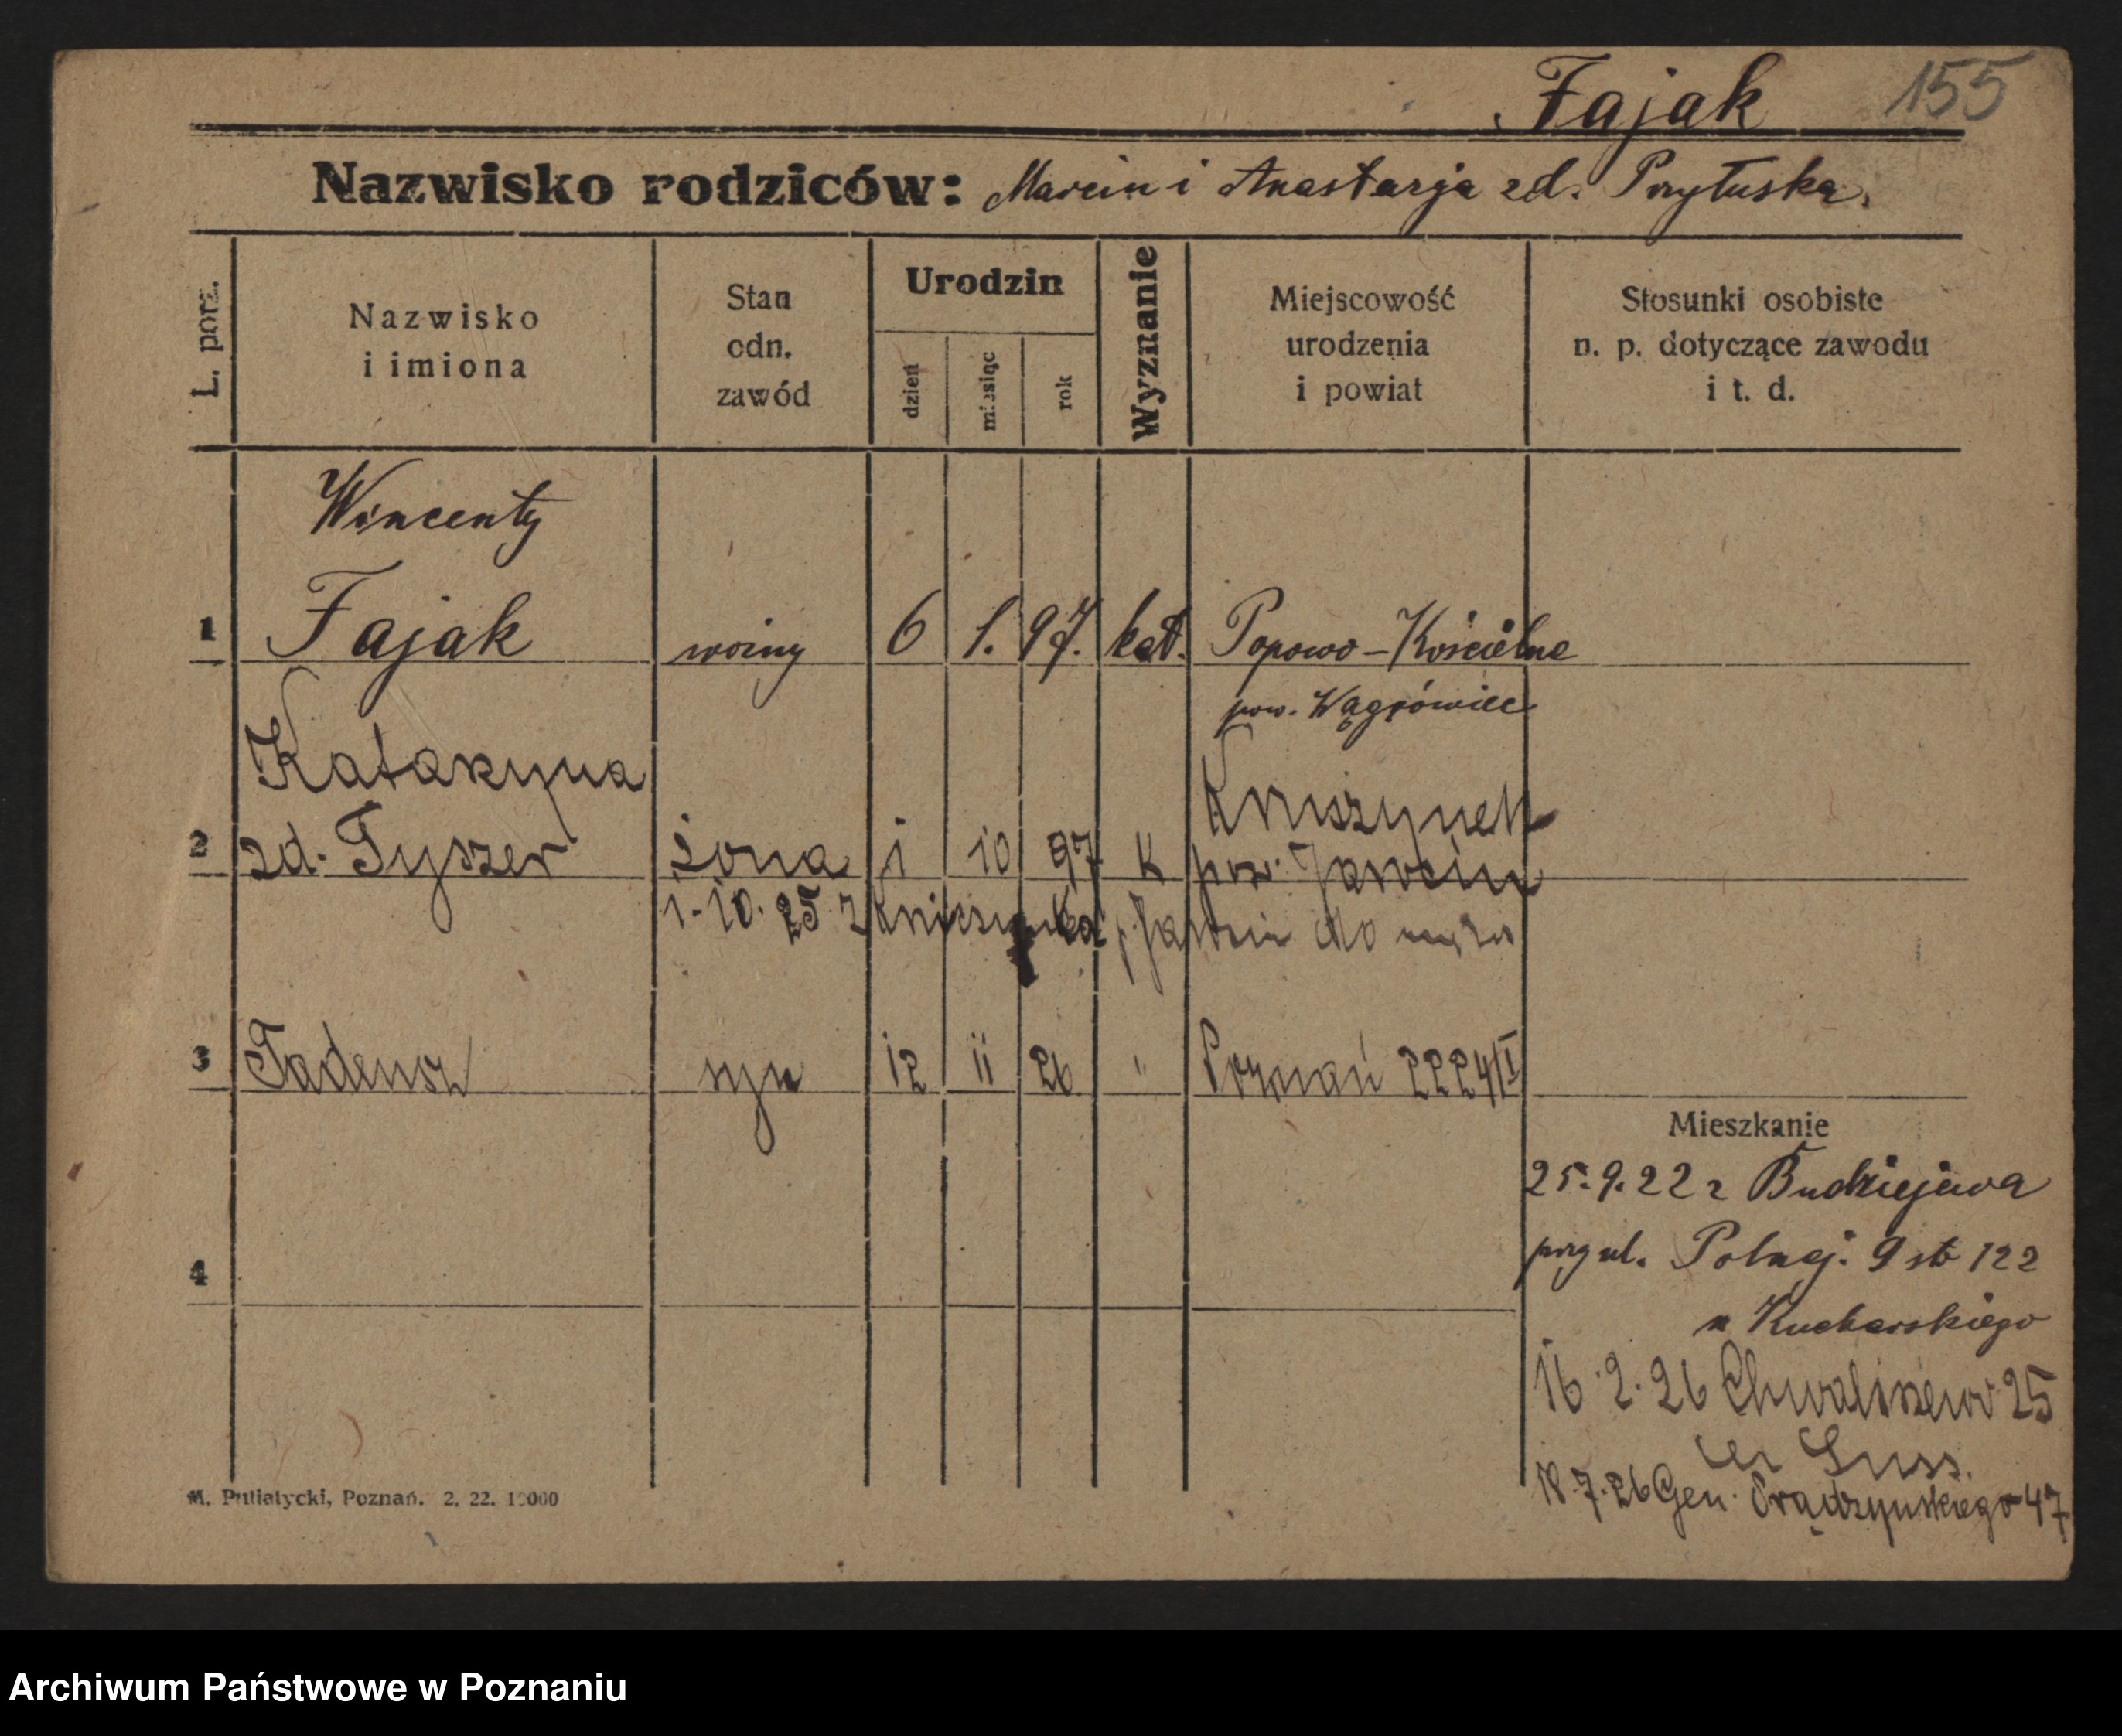 Fajak 155
Nazwisko rodziców: Marcin i Anastazja zd. Przyłuska.
L. porz.
Nazwisko
i imiona
Stan
odn.
zawód
Urodzin
dzień
miesiąc
rok
Wyznanie
Miejscowość
urodzenia
i powiat
Stosunki osobiste
n. p. dotyczące zawodu
i t. d.
Wincenty
1 Fajak woźny 6 1. 97. kat. Popowo-Kościelne
pow. Wągrówiec
Katarzyna
2 zd. Tyszer żona 1 10 97 K
pow. Jarocin
1.-10. 25 z p. Jarocin do męża
3 Tadeusz syn 12 11 26 " Poznań 2224/I
Mieszkanie
25.9.22 z Budziejewa
przy ul. Polnej. 9 st 122
u Kucharskiego
4
16.2.26 Chwaliszewo 25
18.7.26 Gen. Prądzyńskiego 47
M. Putiatycki, Poznań. 2. 22. 10000
Archiwum Państwowe w Poznaniu